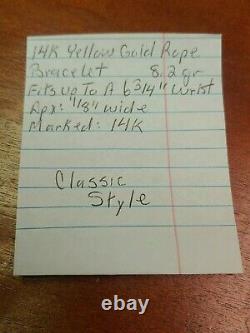 14K Yellow Gold Rope
Bracelet 8.2 gr
Fits Up To A 6 3/4" Wrist
Apx: "1/8" wide
Marked: 14K
Classic
Style
ebay